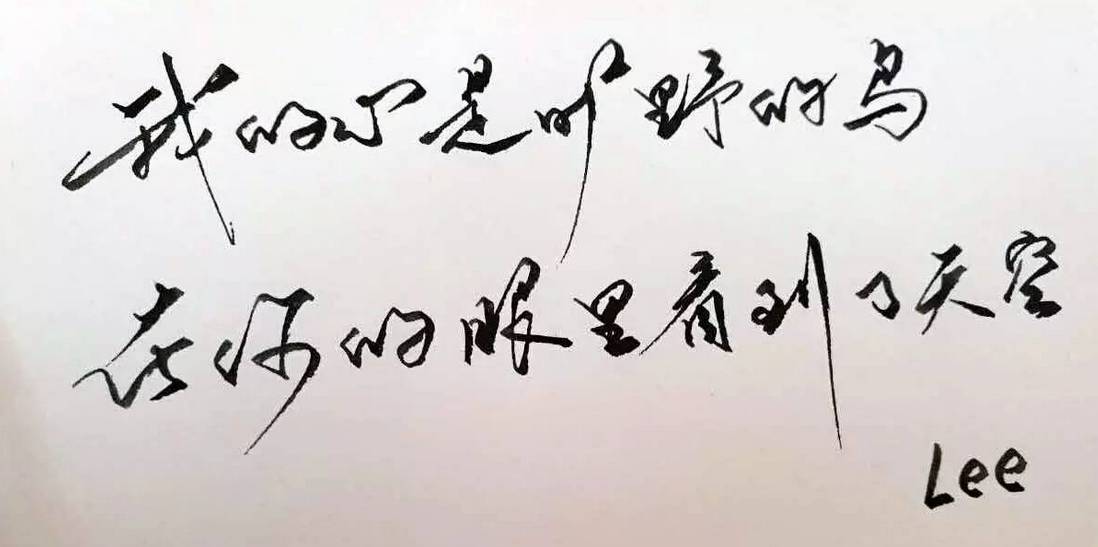 我的心是旷野的鸟
在你的眼里看到了天空
Lee